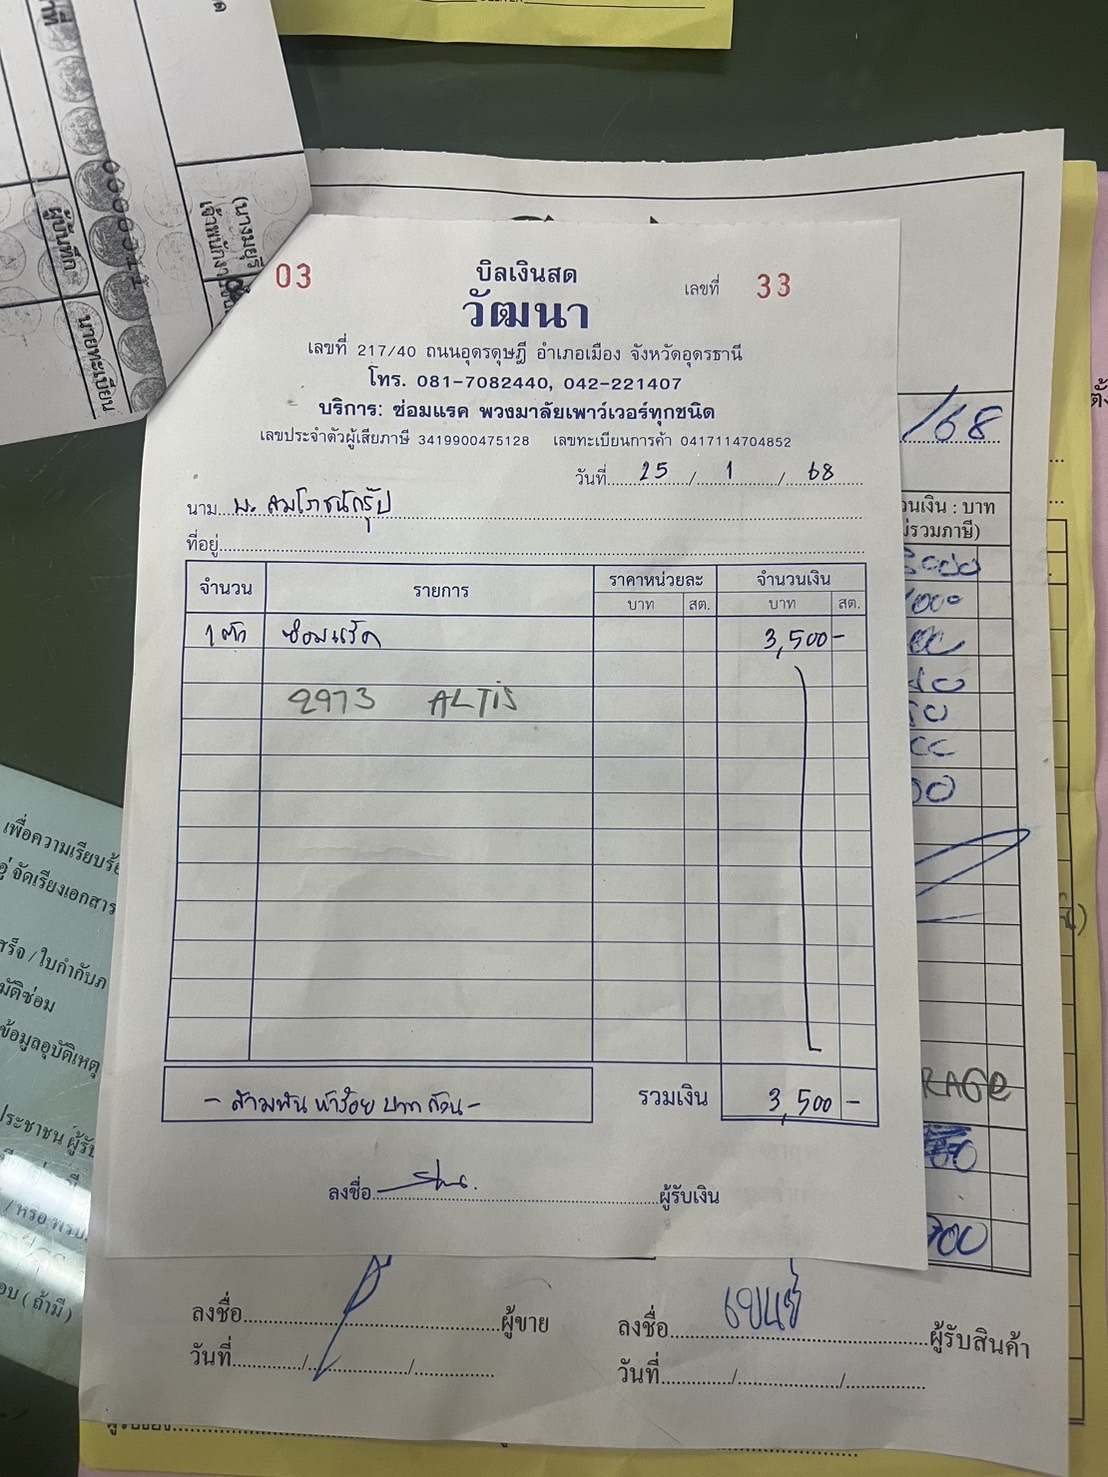 03
บิลเงินสด
เลขที่ 33
วัฒนา
เลขที่ 217/40 ถนนอุดรดุษฎี อำเภอเมือง จังหวัดอุดรธานี
โทร. 081-7082440, 042-221407
บริการ: ซ่อมแรค พวงมาลัยเพาว์เวอร์ทุกชนิด
เลขประจำตัวผู้เสียภาษี 3419900475128 เลขทะเบียนการค้า 0417114704852
วันที่ 25 / 1 / 68
นาม บ. สมโภชน์กรุ๊ป
ที่อยู่
จำนวน รายการ ราคาหน่วยละ จำนวนเงิน
บาท สต. บาท สต.
1 ตัว ซ่อมแร็ค 3,500 -
2973 ALTIS
- สามพันห้าร้อยบาทถ้วน - รวมเงิน 3,500 -
ลงชื่อ ผู้รับเงิน
ลงชื่อ ผู้ขาย ลงชื่อ ผู้รับสินค้า
วันที่ / / วันที่ / /
/68
บาท
3000
เจ้าพนักงาน
ผู้บันทึก
นายทะเบียน
เพื่อความเรียบร้
จัดเรียงเอกสาร
ข้อมูลอุบัติเหตุ
(ถ้ามี)